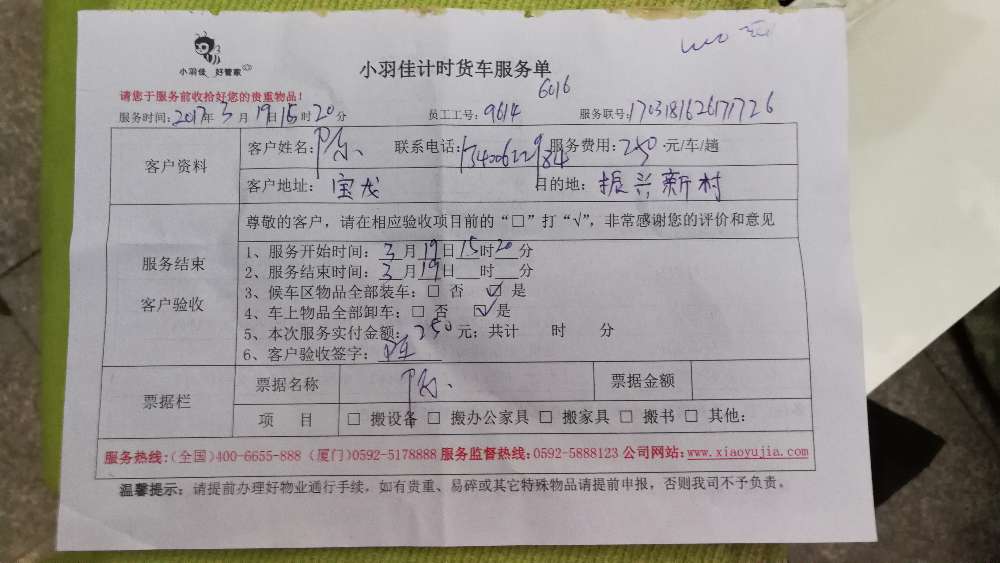 小羽佳 好管家
小羽佳计时货车服务单
6016
请您于服务前收拾好您的贵重物品!
服务时间: 2017年3月19日15时20分 员工工号: 9614 服务联号: 170318162617726
客户资料
客户姓名: 联系电话: 服务费用: 250 元/车/趟
客户地址: 宝龙 目的地: 振兴新村
服务结束
客户验收
尊敬的客户，请在相应验收项目前的“□”打“√”，非常感谢您的评价和意见
1、服务开始时间: 3月19日15时20分
2、服务结束时间: 3月19日 时 分
3、候车区物品全部装车: □ 否 ☑ 是
4、车上物品全部卸车: □ 否 ☑ 是
5、本次服务实付金额: 250元; 共计 时 分
6、客户验收签字:
票据栏
票据名称 票据金额
项 目 □ 搬设备 □ 搬办公家具 □ 搬家具 □ 搬书 □ 其他:
服务热线:(全国)400-6655-888 (厦门)0592-5178888 服务监督热线:0592-5888123 公司网站:www.xiaoyujia.com
温馨提示: 请提前办理好物业通行手续，如有贵重、易碎或其它特殊物品请提前申报，否则我司不予负责。